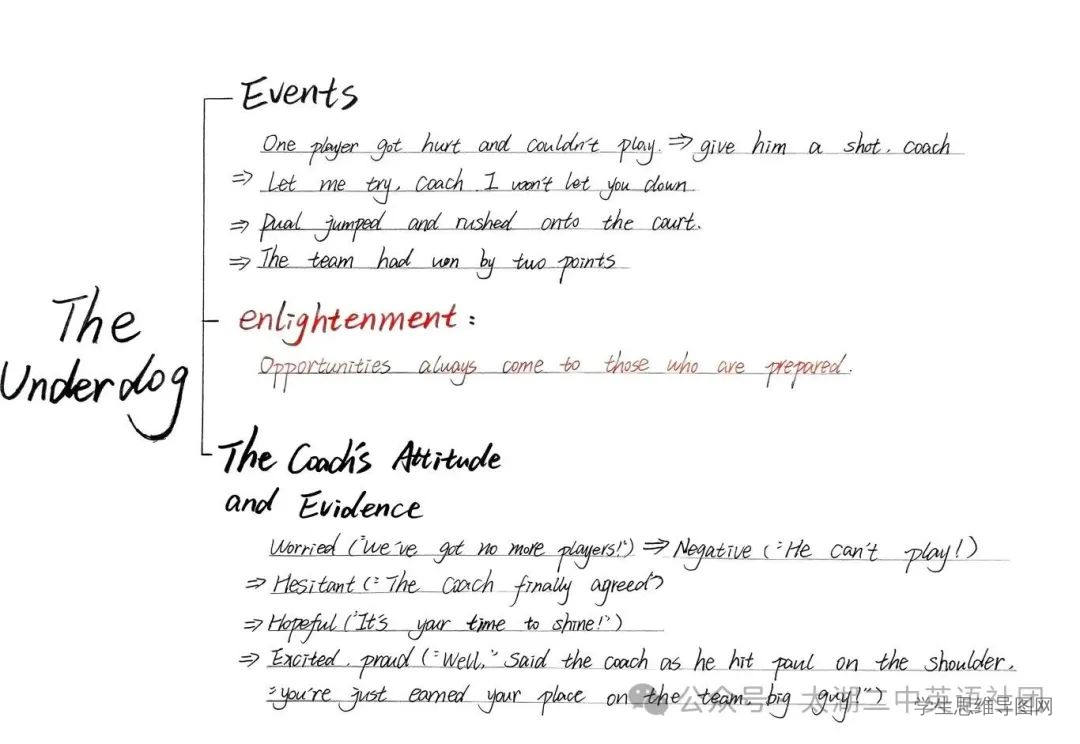 Events
One player got hurt and couldn't play. ⇒ give him a shot, coach
⇒ Let me try, coach. I won't let you down
⇒ Pual jumped and rushed onto the court.
⇒ The team had won by two points
The
Underdog
enlightenment:
Opportunities always come to those who are prepared.
The Coach's Attitude
and Evidence
Worried ("We've got no more players!") ⇒ Negative ("He can't play!)
⇒ Hesitant ("The coach finally agreed")
⇒ Hopeful ("It's your time to shine!")
⇒ Excited, proud ("Well," said the coach as he hit paul on the shoulder,
"you're just earned your place on the team, big guy!")
公众号 · 太湖二中英语社团
学生思维导图网